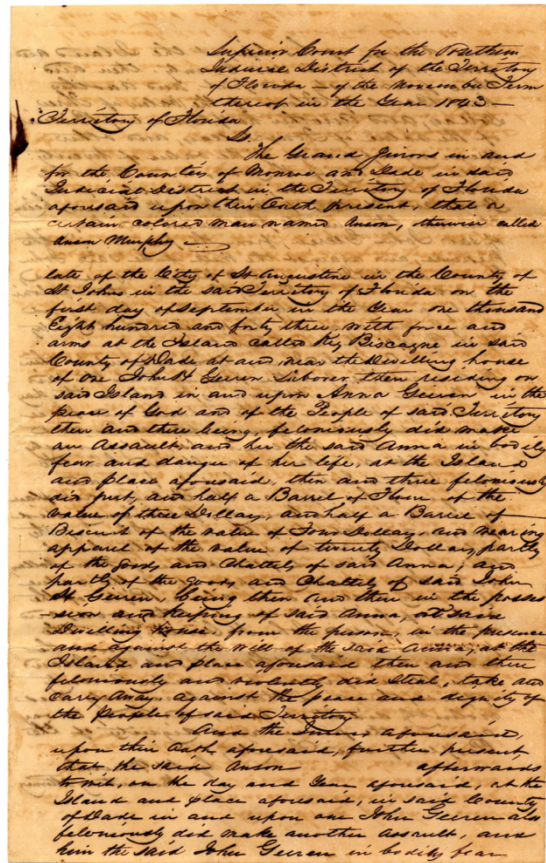 Superior Court for the Southern
Judicial District of the Territory
of Florida - of the November Term
thereof in the Year 1843 -
Territory of Florida
The Grand Jurors in and
for the Counties of Monroe and Dade in said
Judicial District in the Territory of Florida
aforesaid upon their Oath present, that a
certain colored man named Anson, otherwise called
Anson Murphy
late of the City of St Augustine in the County of
St Johns in the said Territory of Florida on the
first day of September in the Year one thousand
Eight hundred and forty three, with force and
arms at the Island called Key Biscayne in said
County of Dade at and near the Dwelling house
of one John H Geiren Laborer then residing on
said Island in and upon Anna Geiren in the
peace of God and of the People of said Territory
then and there being, feloniously did make
an Assault, and her the said Anna in bodily
fear and danger of her life, at the Island
and place aforesaid, then and there feloniously
did put, and half a Barrel of Flour of the
value of three Dollars, and half a Barrel of
Biscuit of the value of Four Dollars, and wearing
apparel of the value of twenty Dollars, partly
of the goods and Chattels of said Anna, and
partly of the goods and Chattels of said John
H Geiren, being then and there in the posses
-sion and keeping of said Anna, at said
Dwelling House, from the person, in the presence
and against the will of the said Anna, at the
Island and place aforesaid then and there
feloniously and violently did steal, take and
carry away against the peace and dignity of
the People of said Territory
And the Jurors aforesaid,
upon their Oath aforesaid, further present,
that the said Anson afterwards
to wit, on the day and Year aforesaid, at the
Island and place aforesaid, in said County
of Dade in and upon one John Geiren also
feloniously did make another assault, and
him the said John Geiren in bodily fear